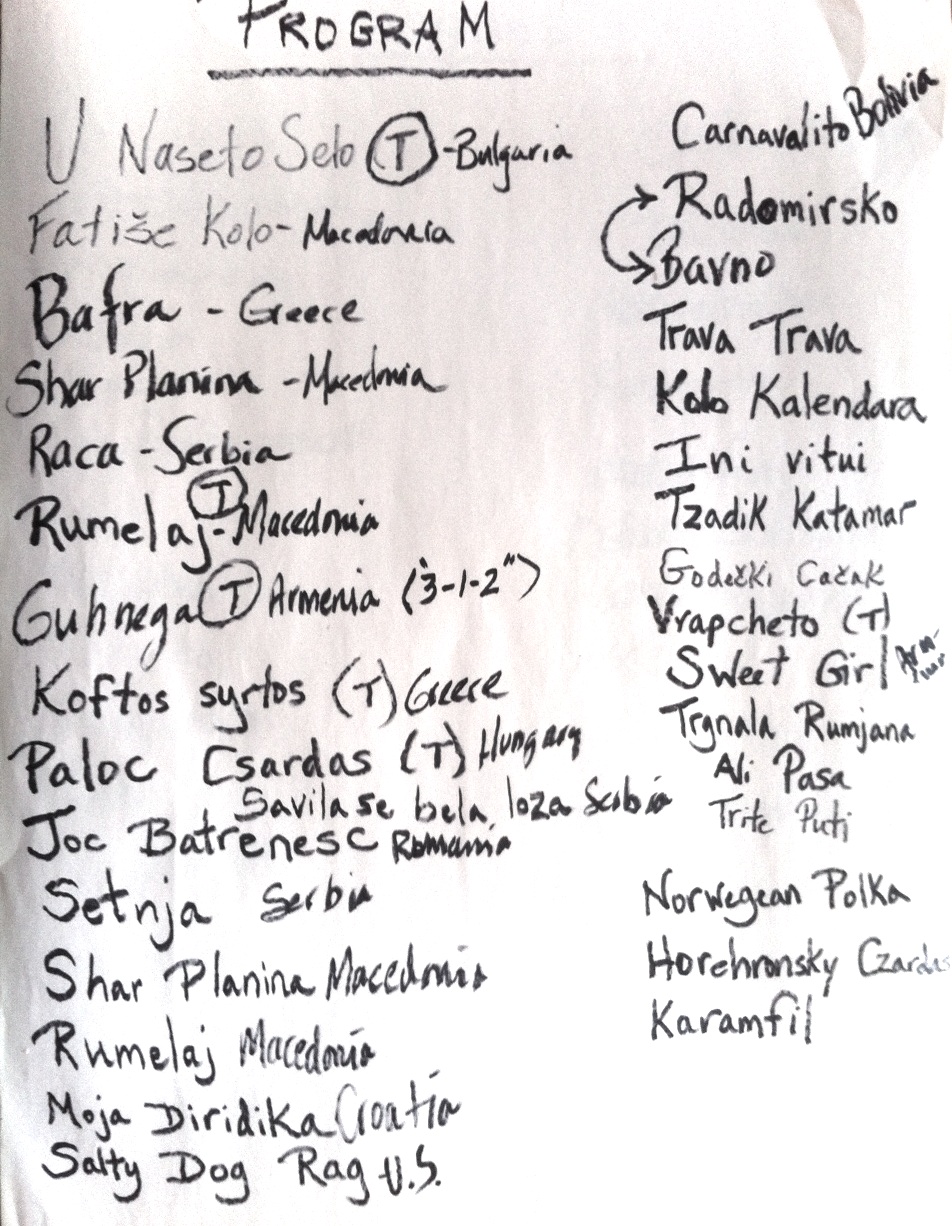 PROGRAM
U Naseto Selo (T) - Bulgaria
Fatiše Kolo - Macadonia
Bafra - Greece
Shar Planina - Macedonia
Raca - Serbia
Rumelaj (T) - Macedonia
Guhnega (T) Armenia ("3-1-2")
Koftos syrtos (T) Greece
Paloc Csardas (T) Hungary
Savila se bela loza Serbia
Joc Batrenesc Romania
Setnja Serbia
Shar Planina Macedonia
Rumelaj Macedonia
Moja Diridika Croatia
Salty Dog Rag U.S.
Carnavalito Bolivia
Radomirsko
Bavno
Trava Trava
Kolo Kalendara
Ini vitui
Tzadik Katamar
Godečki Cačak
Vrapcheto (T)
Sweet Girl
Trgnala Rumjana
Ali Pasa
Trite Puti
Norwegean Polka
Horehronsky Czardas
Karamfil